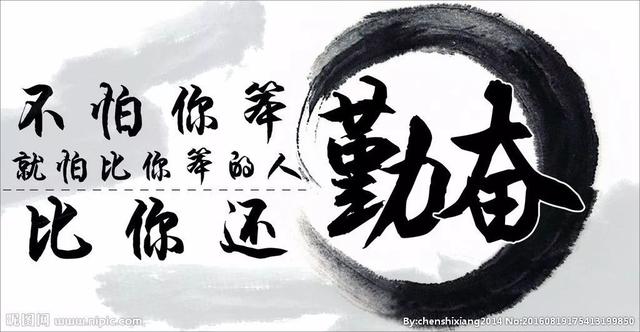 不怕你笨
就怕比你笨的人
比你还
勤奋
昵图网 www.nipic.com
By:chenshixiang2014 No:20160819175413199850